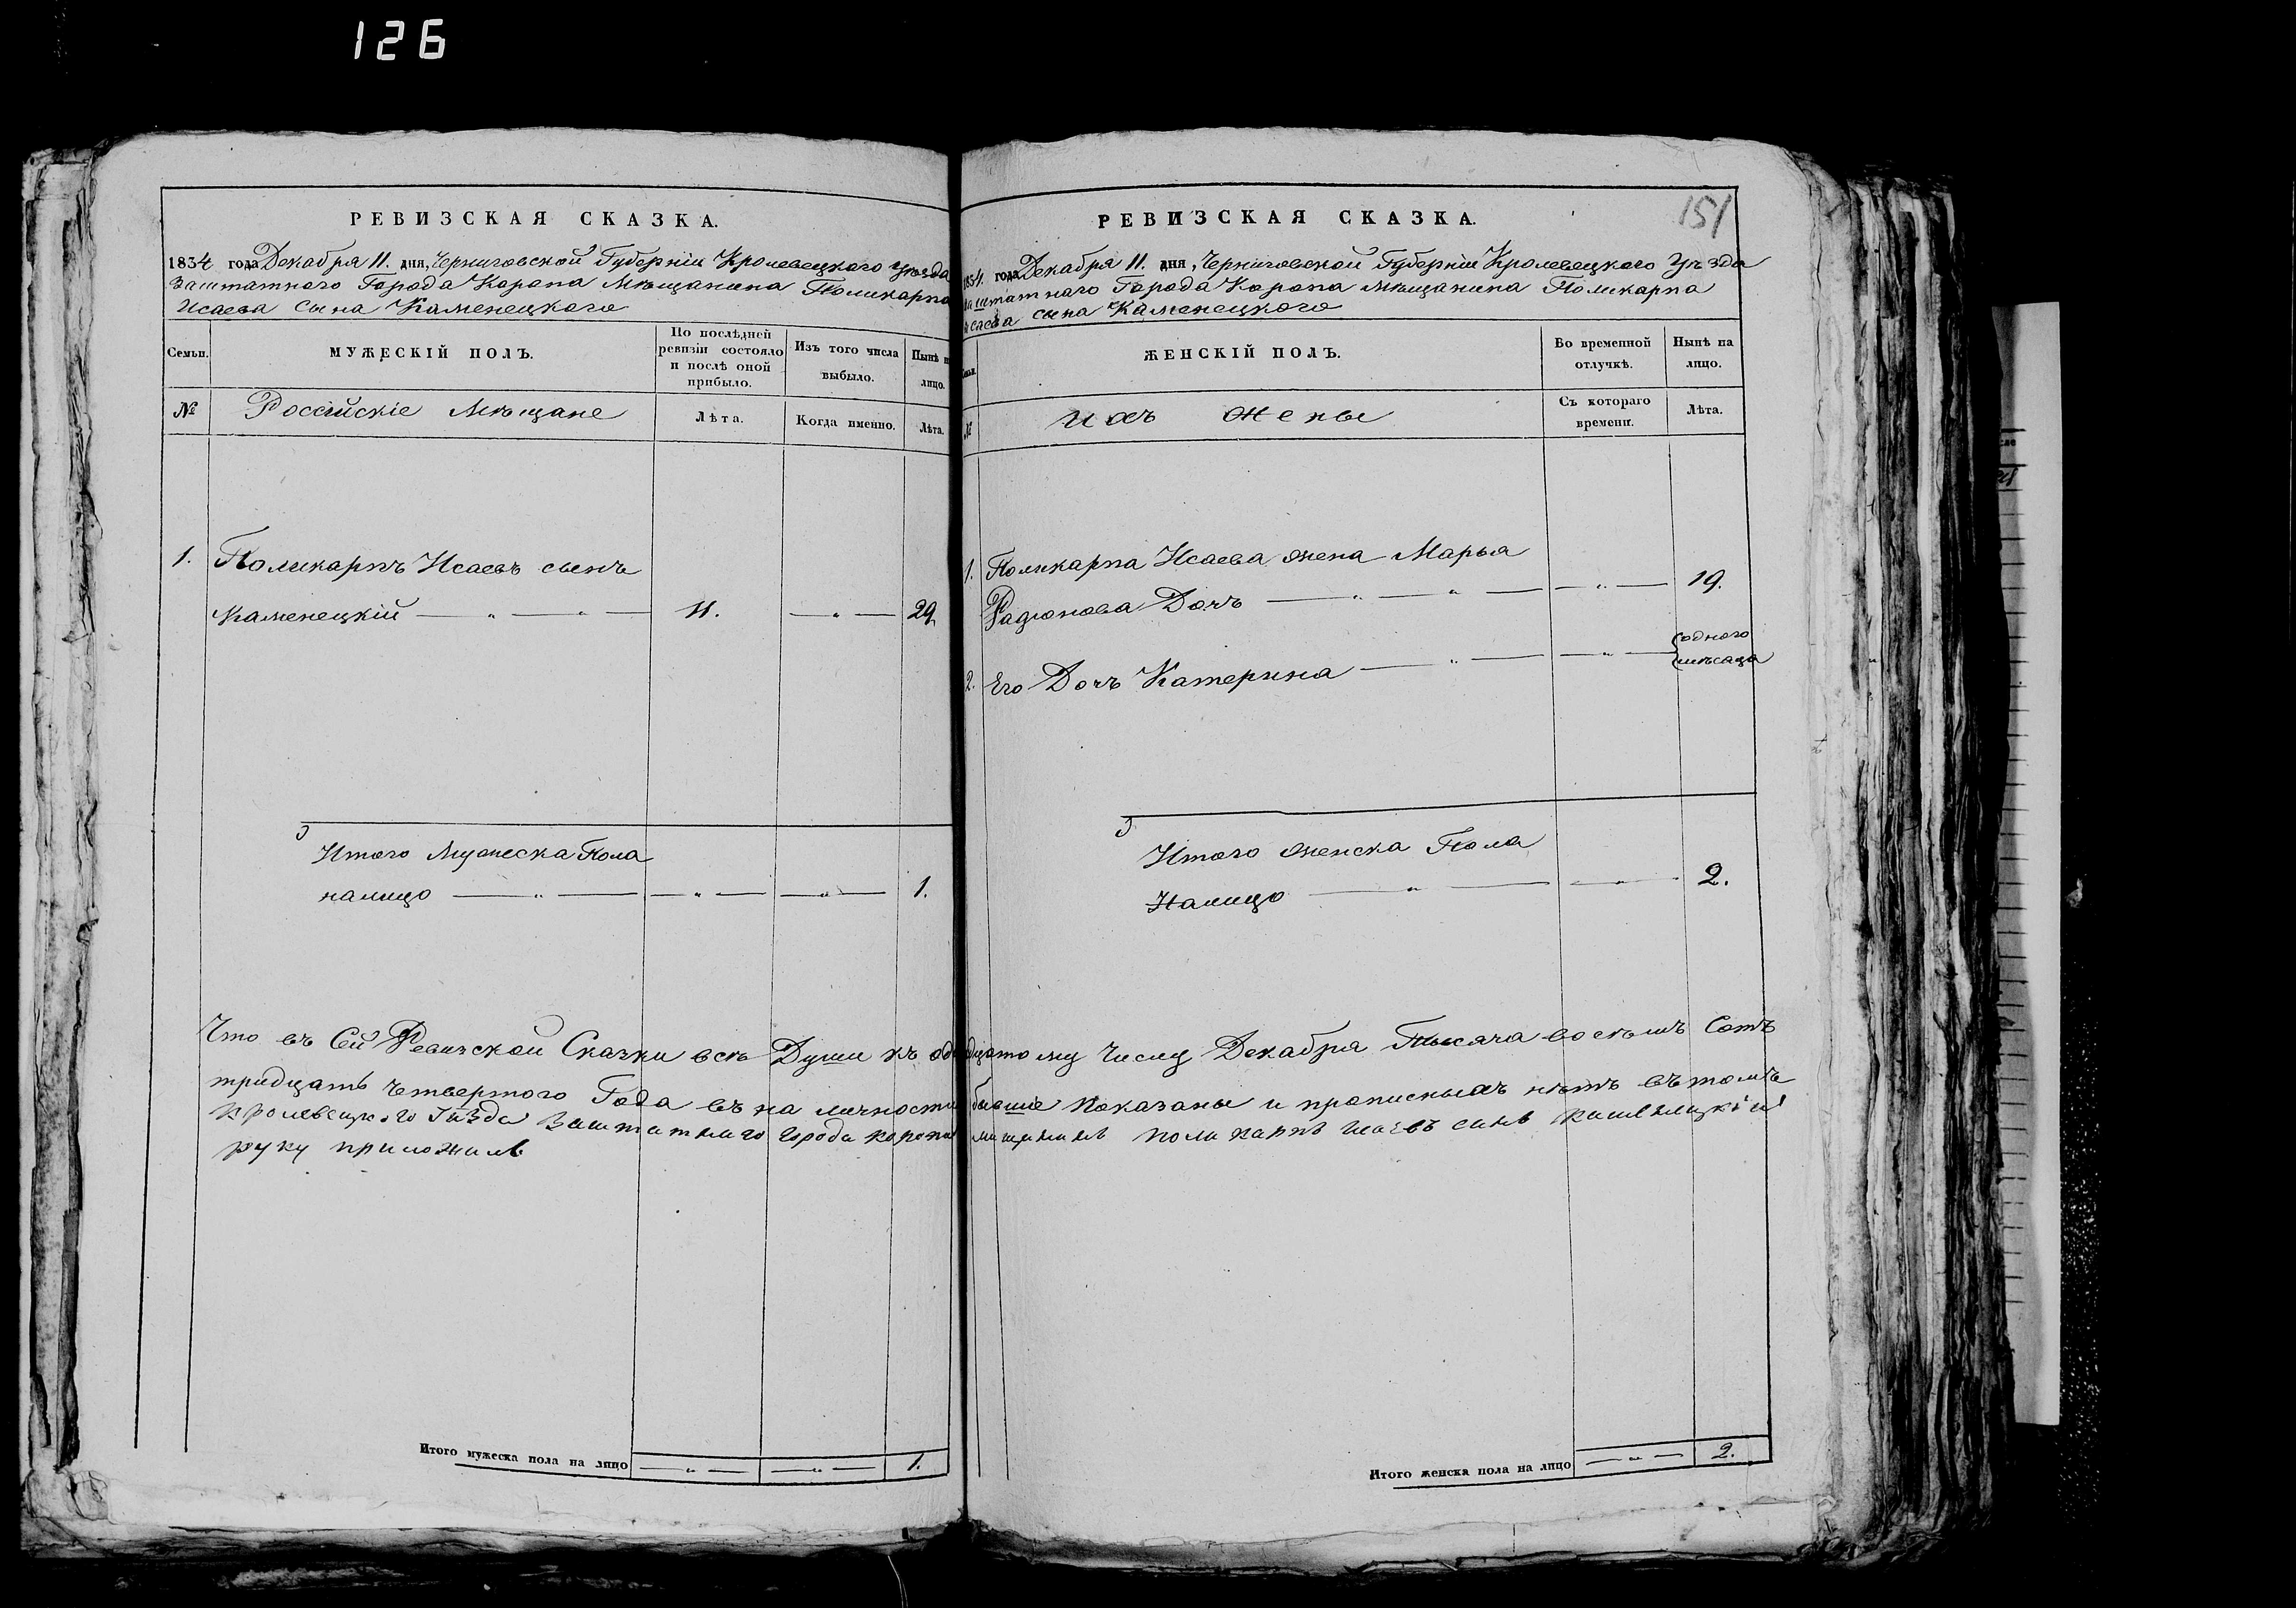 126
РЕВИЗСКАЯ СКАЗКА.
1834 года Декабря 11. дня, Черниговской Губерніи Кролевецкого уѣзда
Заштатного Города Коропа Мѣщанина Поликарпа
Исаева сына Каменецкого
Семьи.
МУЖЕСКІЙ ПОЛЪ.
По послѣдней
ревизіи состояло
и послѣ оной
прибыло.
Изъ того числа
выбыло.
Нынѣ н
лицо.
№
Россійскіе Мѣщане
Лѣта.
Когда именно.
Лѣта.
1. Поликарпъ Исаевъ сынъ
Каменецкій — „ — „ — 11. — „ — 29.
Итого Мужеска Пола
налицо — „ — — „ — — „ — 1.
Что въ Сей Ревизской Сказки всѣ Души къ оди
тридцать Четвертого Года въ на личности
Кролевецкого уѣзда Заштатнаго города коропа
руку приложилъ
Итого мужеска пола на лицо — „ — — „ — 1.
РЕВИЗСКАЯ СКАЗКА.
151
1834. года Декабря 11. дня, Черниговской Губерніи Кролевецкого Уѣзда
Заштатнаго Города Коропа мѣщанина Поликарпа
Исаева сына Каменецкого
ЖЕНСКІЙ ПОЛЪ.
Во временной
отлучкѣ.
Нынѣ на
лицо.
№
ихъ жены
Съ котораго
времени.
Лѣта.
1. Поликарпа Исаева жена Марья
Радіонова Дочъ — „ — „ — — „ — 19.
одного
мѣсаца
2. Его Дочъ Катерина — „ — — „ —
Итого женска Пола
Налицо — „ — — „ — 2.
дцатому Числу Декабря Тысяча восѣмъ Сотъ
бывшіе показаны и прописныхъ нѣтъ вътомъ
мищанинъ поликарпъ исаевъ синъ каменецкій
Итого женска пола на лицо — „ — 2.